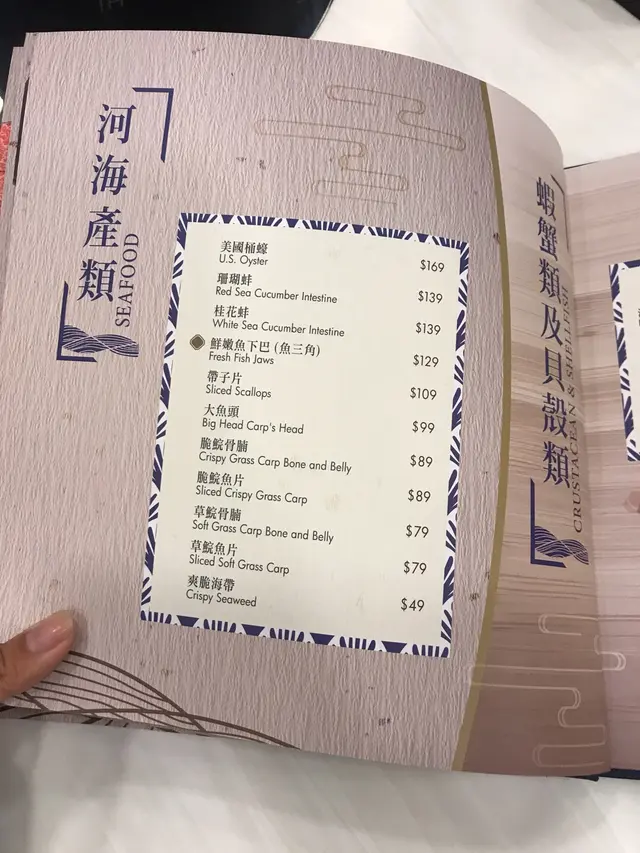 河海產類
SEAFOOD
美國桶蠔
U.S. Oyster
$169
珊瑚蚌
Red Sea Cucumber Intestine
$139
桂花蚌
White Sea Cucumber Intestine
$139
鮮嫩魚下巴 (魚三角)
Fresh Fish Jaws
$129
帶子片
Sliced Scallops
$109
大魚頭
Big Head Carp's Head
$99
脆鯇骨腩
Crispy Grass Carp Bone and Belly
$89
脆鯇魚片
Sliced Crispy Grass Carp
$89
草鯇骨腩
Soft Grass Carp Bone and Belly
$79
草鯇魚片
Sliced Soft Grass Carp
$79
爽脆海帶
Crispy Seaweed
$49
蝦蟹類及貝殼類
CRUSTACEAN & SHELLFISH